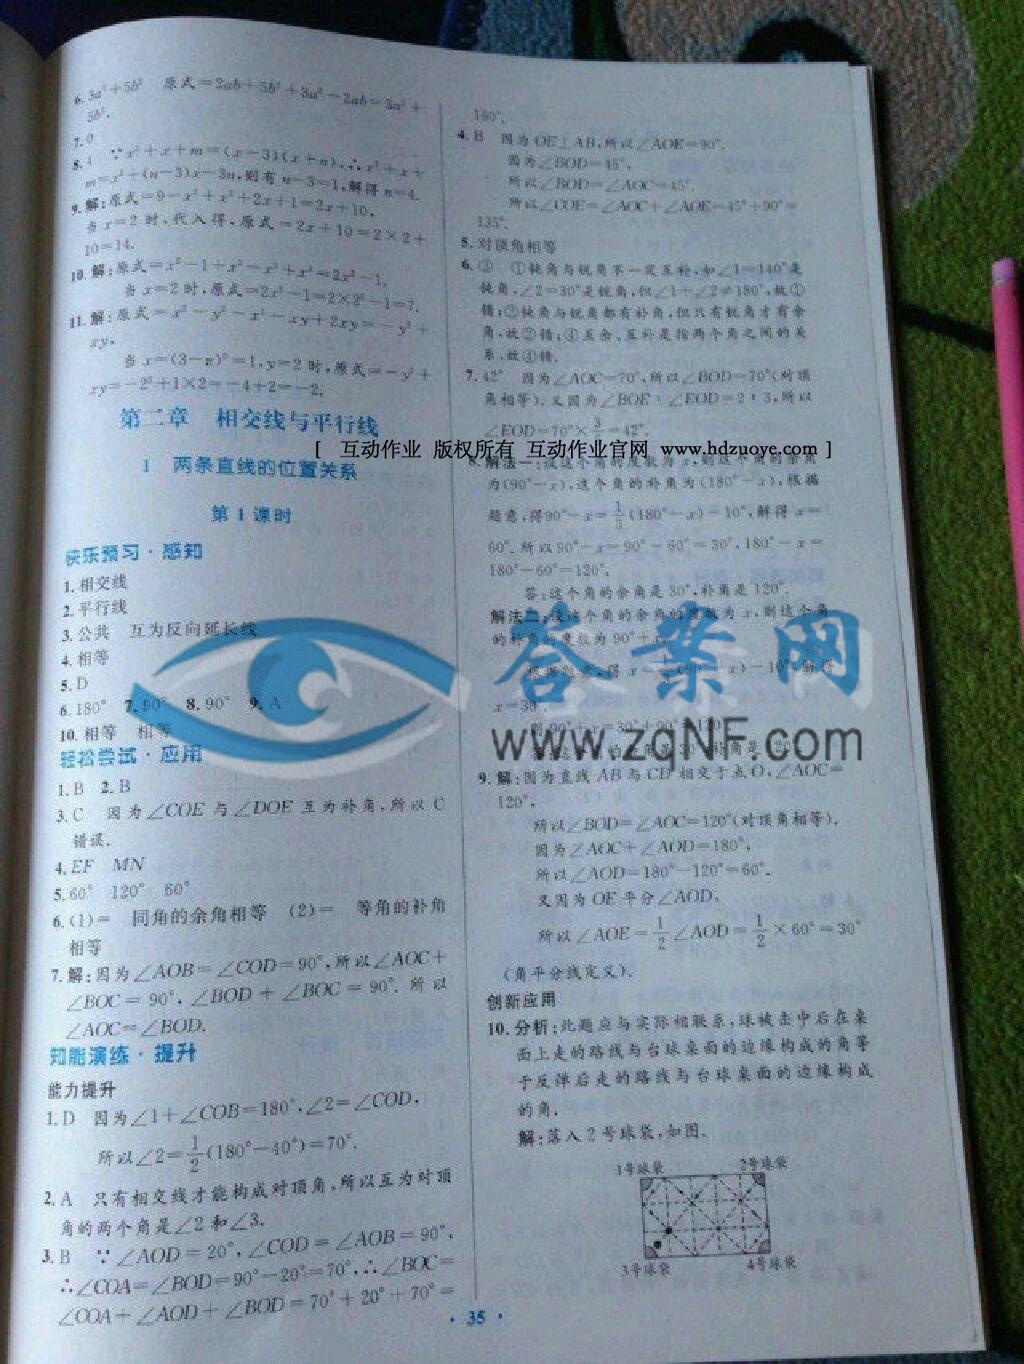 6. 3a²+5b² 原式=2ab+5b²+3a²-2ab=3a²+
5b².
7. 0
8. 4 ∵x²+x+m=(x-3)(x+n),∴x²+x+
m=x²+(n-3)x-3n,则有n-3=1,解得n=4.
9. 解:原式=9-x²+x²+2x+1=2x+10.
当x=2时,代入得,原式=2x+10=2×2+
10=14.
10. 解:原式=x²-1+x²-x³+x³=2x²-1.
当x=2时,原式=2x²-1=2×2²-1=7.
11. 解:原式=x²-y²-x²-xy+2xy=-y²+
xy.
当x=(3-π)⁰=1,y=2时,原式=-y²+
xy=-2²+1×2=-4+2=-2.
第二章 相交线与平行线
1 两条直线的位置关系
第1课时
快乐预习·感知
1. 相交线
2. 平行线
3. 公共 互为反向延长线
4. 相等
5. D
6. 180° 7. 90° 8. 90° 9. A
10. 相等 相等
轻松尝试·应用
1. B 2. B
3. C 因为∠COE与∠DOE互为补角,所以C
错误.
4. EF MN
5. 60° 120° 60°
6. (1)= 同角的余角相等 (2)= 等角的补角
相等
7. 解:因为∠AOB=∠COD=90°,所以∠AOC+
∠BOC=90°,∠BOD+∠BOC=90°.所以
∠AOC=∠BOD.
知能演练·提升
能力提升
1. D 因为∠1+∠COB=180°,∠2=∠COD,
所以∠2=1/2(180°-40°)=70°.
2. A 只有相交线才能构成对顶角,所以互为对顶
角的两个角是∠2和∠3.
3. B ∵∠AOD=20°,∠COD=∠AOB=90°,
∴∠COA=∠BOD=90°-20°=70°,∴∠BOC=
∠COA+∠AOD+∠BOD=70°+20°+70°=
160°.
4. B 因为OE⊥AB,所以∠AOE=90°.
因为∠BOD=45°,
所以∠BOD=∠AOC=45°.
所以∠COE=∠AOC+∠AOE=45°+90°=
135°.
5. 对顶角相等
6. ③ ①钝角与锐角不一定互补,如∠1=140°是
钝角,∠2=30°是锐角,但∠1+∠2≠180°,故①
错;②钝角与锐角都有补角,但只有锐角才有余
角,故②错;④互余、互补是指两个角之间的关
系,故④错.
7. 42° 因为∠AOC=70°,所以∠BOD=70°(对顶
角相等).又因为∠BOE∶∠EOD=2∶3,所以
∠EOD=70°×3/5=42°.
[ 互动作业 版权所有 互动作业官网 www.hdzuoye.com ]
8. 解法一:设这个角的度数为x,则这个角的余角
为(90°-x),这个角的补角为(180°-x),根据
题意,得90°-x=1/3(180°-x)-10°,解得x=
60°.所以90°-x=90°-60°=30°,180°-x=
180°-60°=120°.
答:这个角的余角是30°,补角是120°.
解法二:设这个角的余角的度数为x,则这个角
的补角的度数为90°+x.
根据题意,得x=
x=30°.
则90°+x=30°+90°=120°.
答案网
www.zqNF.com
9. 解:因为直线AB与CD相交于点O,∠AOC=
120°,
所以∠BOD=∠AOC=120°(对顶角相等).
因为∠AOC+∠AOD=180°,
所以∠AOD=180°-120°=60°.
又因为OE平分∠AOD,
所以∠AOE=1/2∠AOD=1/2×60°=30°
(角平分线定义).
创新应用
10. 分析:此题应与实际相联系,球被击中后在桌
面上走的路线与台球桌面的边缘构成的角等
于反弹后走的路线与台球桌面的边缘构成
的角.
解:落入2号球袋,如图.
1号球袋 2号球袋
3号球袋 4号球袋
· 35 ·